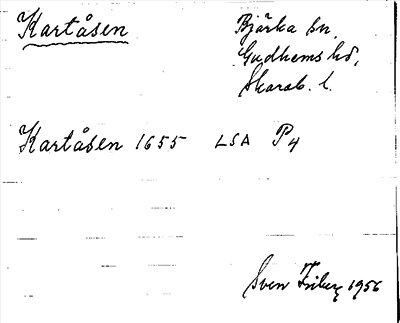 Kartåsen
Bjärka sn,
Gudhems hd,
Skarab. l.
Kartåsen 1655 LSA P4
Sven Friberg 1956